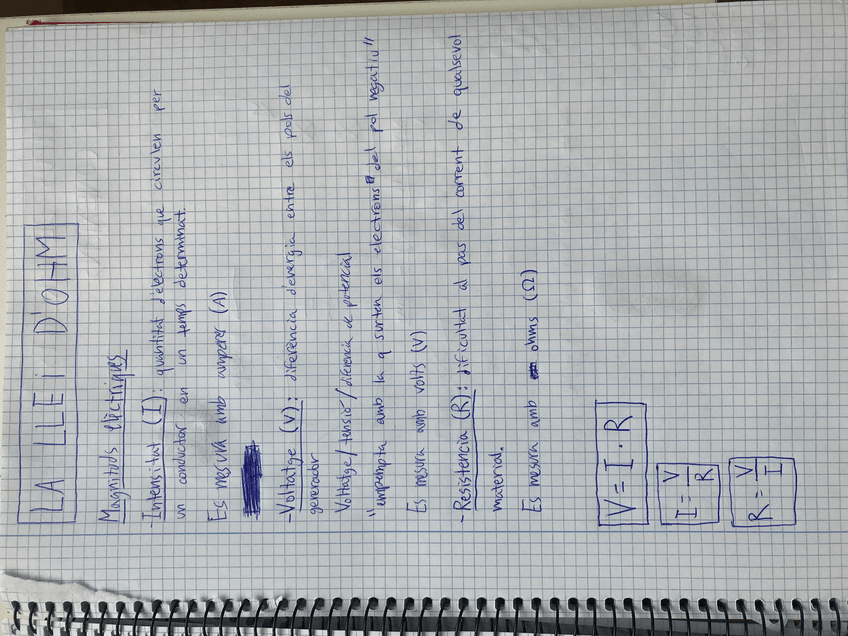 LA LLEI D'OHM
Magnituds elèctriques
-Intensitat (I): quantitat d'electrons que circulen per
un conductor en un temps determinat.
Es mesura amb amperer (A)
-Voltatge (V): diferència d'energia entre els pols del
generador
Voltatge/tensió/diferencia de potencial
"empempta amb la q surten els electrons" del pol negatiu"
Es mesura amb volts (V)
-Resistencia (R): dificultat al pas del corrent de qualsevol
material.
Es mesura amb ohms (Ω)
V = I · R
I = V/R
R = V/I